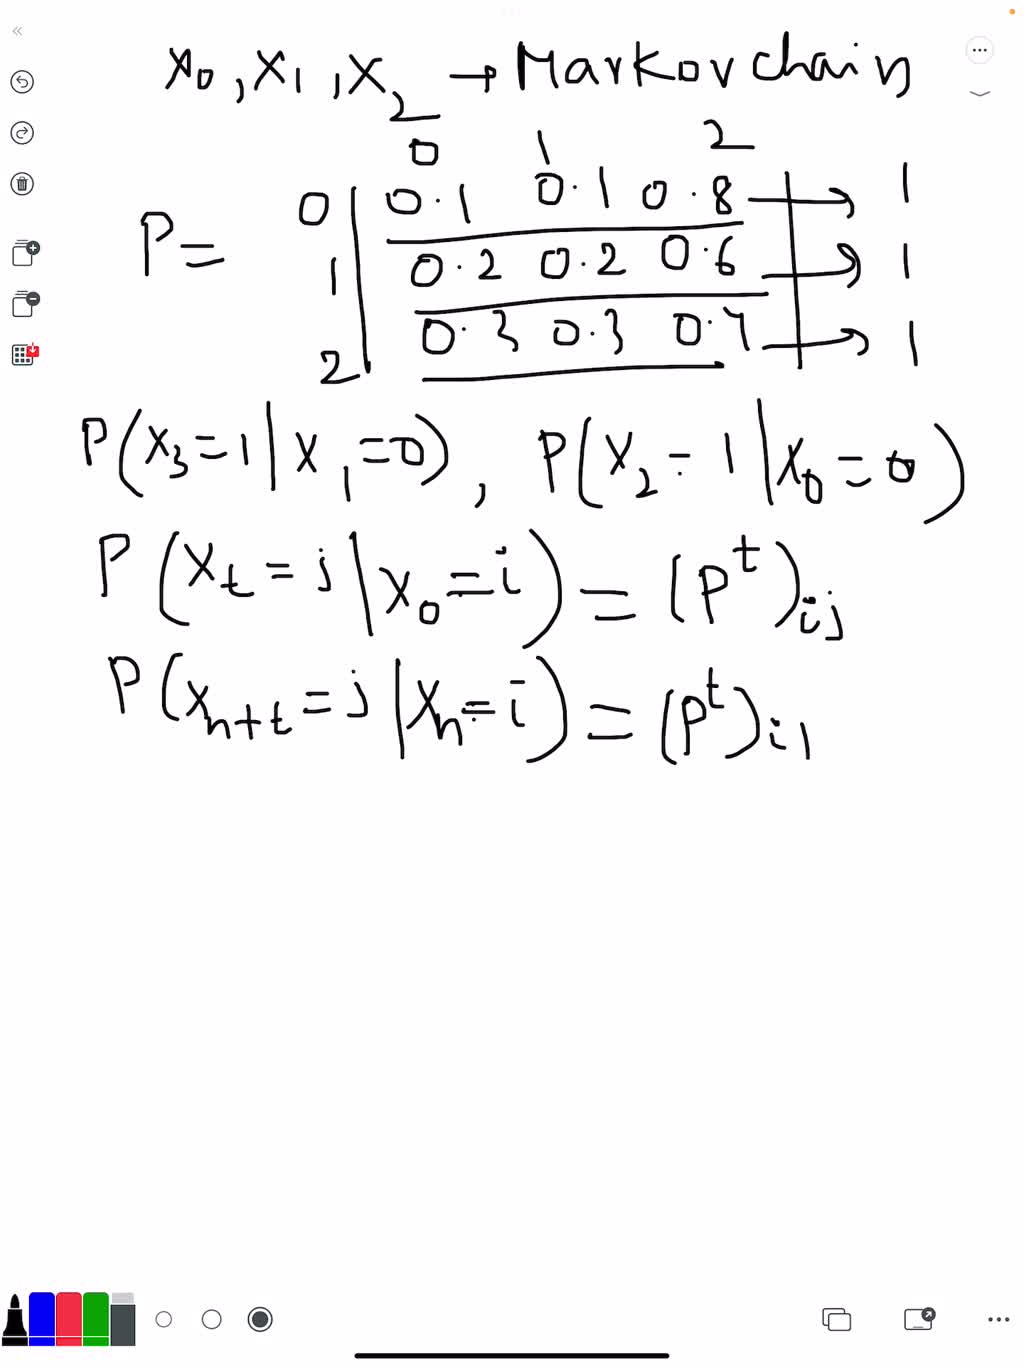 X₀, X₁, X₂ → Markov chain
0 1 2
P = 0 | 0.1 0.1 0.8 | → 1
1 | 0.2 0.2 0.6 | → 1
2 | 0.3 0.3 0.4 | → 1
P(X₃=1|X₁=0), P(X₂=1|X₀=0)
P(Xₜ=j|X₀=i) = (Pᵗ)ij
P(Xₙ₊ₜ=j|Xₙ=i) = (Pᵗ)i1